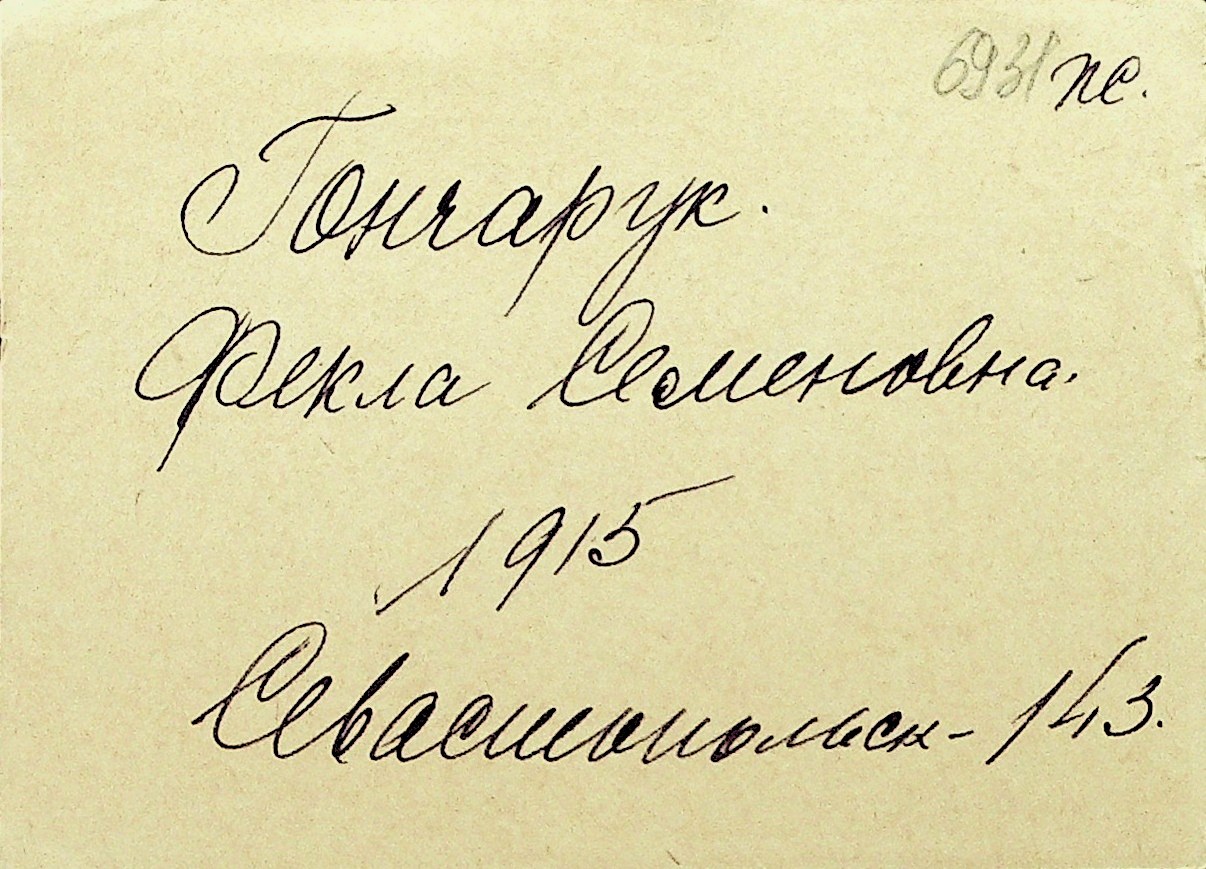 6931 пс.
Гончарук.
Фекла Семеновна.
1915
Севастопольск-143.